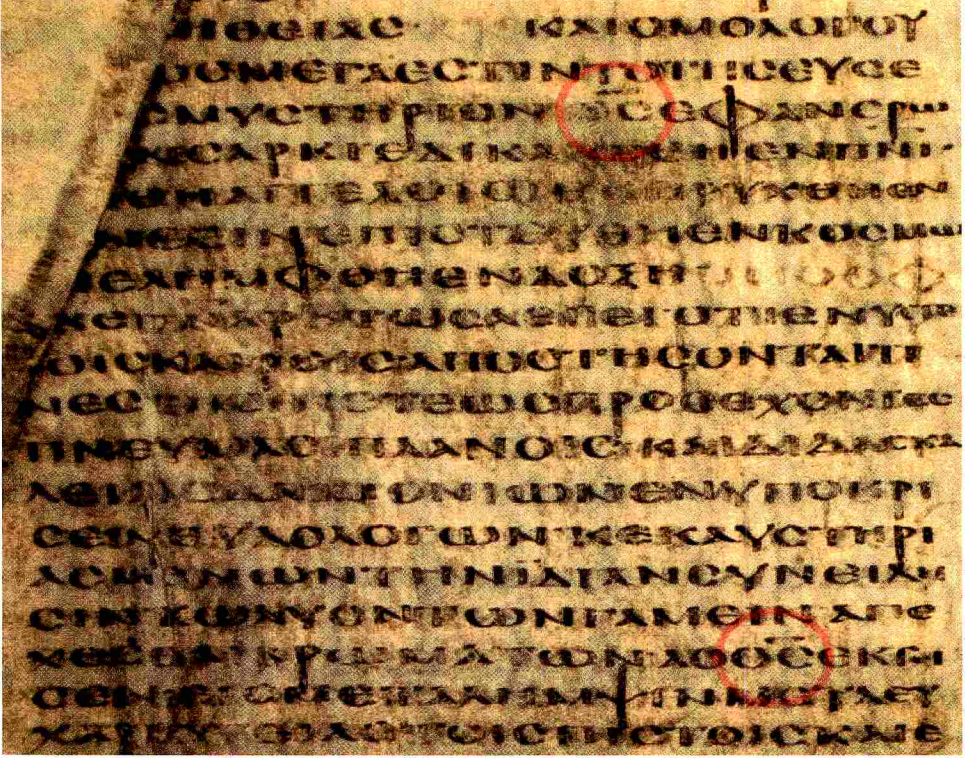 ΗΘΕΙΑC ΚΑΙΟΜΟΛΟΓΟΥ
ΩCΜΕΓΑΕCΤΙΝΤΟΤΗCΕΥCΕ
CΜΥCΤΗΡΙΟΝΘ̅C̅ΕΦΑΝΕΡΩ
CΑΡΚΙΕΔΙΚΑΙΩΘΗΕΝΠ̅Ν̅Ι̅·
ΦΘΗΑΓΓΕΛΟΙCΕΚΗΡΥΧΘΗΕΝ
ΝΕCΙΝΕΠΙCΤΕΥΘΗΕΝΚΟCΜΩ
ΝΕΛΗΜΦΘΗΕΝΔΟΞΗ
ΔΕΠ̅Ν̅Α̅ΡΗΤΩCΛΕΓΕΙΟΤΙΕΝΥCΤΕ
ΡΟΙCΚΑΙΡΟΙCΑΠΟCΤΗCΟΝΤΑΙΤΙ
ΝΕCΤΗCΠΙCΤΕΩCΠΡΟCΕΧΟΝΤΕC
ΠΝΕΥΜΑCΙΠΛΑΝΟΙCΚΑΙΔΙΔΑCΚΑ
ΛΕΙΑΙCΔΑΙΜΟΝΙΩΝΕΝΥΠΟΚΡΙ
CΕΙΨΕΥΔΟΛΟΓΩΝΚΕΚΑΥCΤΗΡΙ
ΑCΜΕΝΩΝΤΗΝΙΔΙΑΝCΥΝΕΙΔΗ
CΙΝΚΩΛΥΟΝΤΩΝΓΑΜΕΙΝ ΑΠΕ
ΧΕCΘΑΙΒΡΩΜΑΤΩΝΑΟΘ̅C̅ΕΚΤΙ
CΕΝΕΙCΜΕΤΑΛΗΜΨΙΝΜΕΤΑΕΥ
ΧΑΡΙCΤΙΑCΤΟΙCΠΙCΤΟΙCΚΑΙΕ